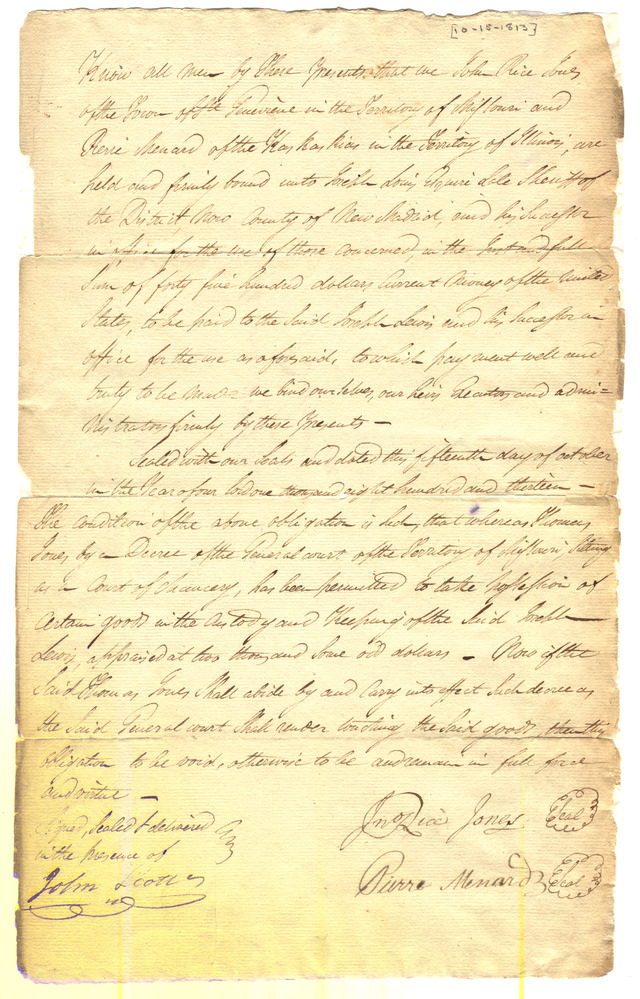 [10-15-1813]
Know all men by These Presents that we John Rice Jones
of the Town of Ste Genevieve in the Territory of Missouri and
Pierre Menard of the Kaskaskias in the Territory of Illinois, are
held and firmly bound unto Joseph Louis Esquire late Sheriff of
the District now County of New Madrid, and his Successor
in office for the use of those concerned, in the Just and full
Sum of forty five hundred dollars Current Money of the United
States, to be paid to the Said Joseph Lewis and his Successor in
office for the use as aforesaid, to which payment well and
truly to be made we bind ourselves, our heirs Executors and admi=
nistrators firmly by these Presents —
Sealed with our Seals and dated this fifteenth day of october
in the Year of our Lord one thousand eight hundred and thirteen —
The condition of the above obligation is Such, that whereas Thomas
Jones by a Decree of the General court of the Territory of Missouri Sitting
as a Court of Chancery, has been permitted to take Possession of
Certain goods in the Custody and Keeping of the Said Joseph
Lewis, appraised at two thousand Some odd dollars — Now if the
Said Thomas Jones Shall abide by and Carry into effect Such decree as
the Said General court Shall render touching the Said goods, then this
obligation to be void, otherwise to be and remain in full force
and virtue —
Signed, Sealed & delivered
in the presence of
John Scott
Jno Rice Jones Seal
Pierre Menard Seal